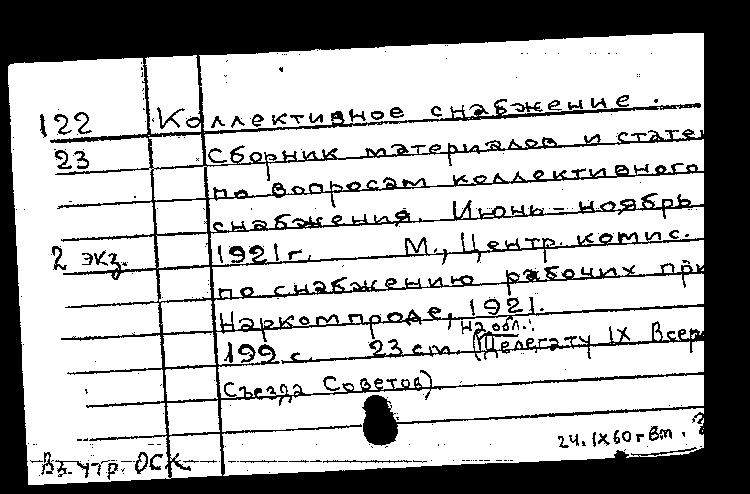 122 Коллективное снабжение.
23 Сборник материалов и статей
по вопросам коллективного
снабжения. Июнь–ноябрь
2 экз. 1921 г. М., Центр. комис.
по снабжению рабочих при
Наркомпроде, 1921.
на обл.:
199 с. 23 ст. (Делегату IX Всер
Съезда Советов).
24.IX60г Вт.
Вз. утр. ОСК